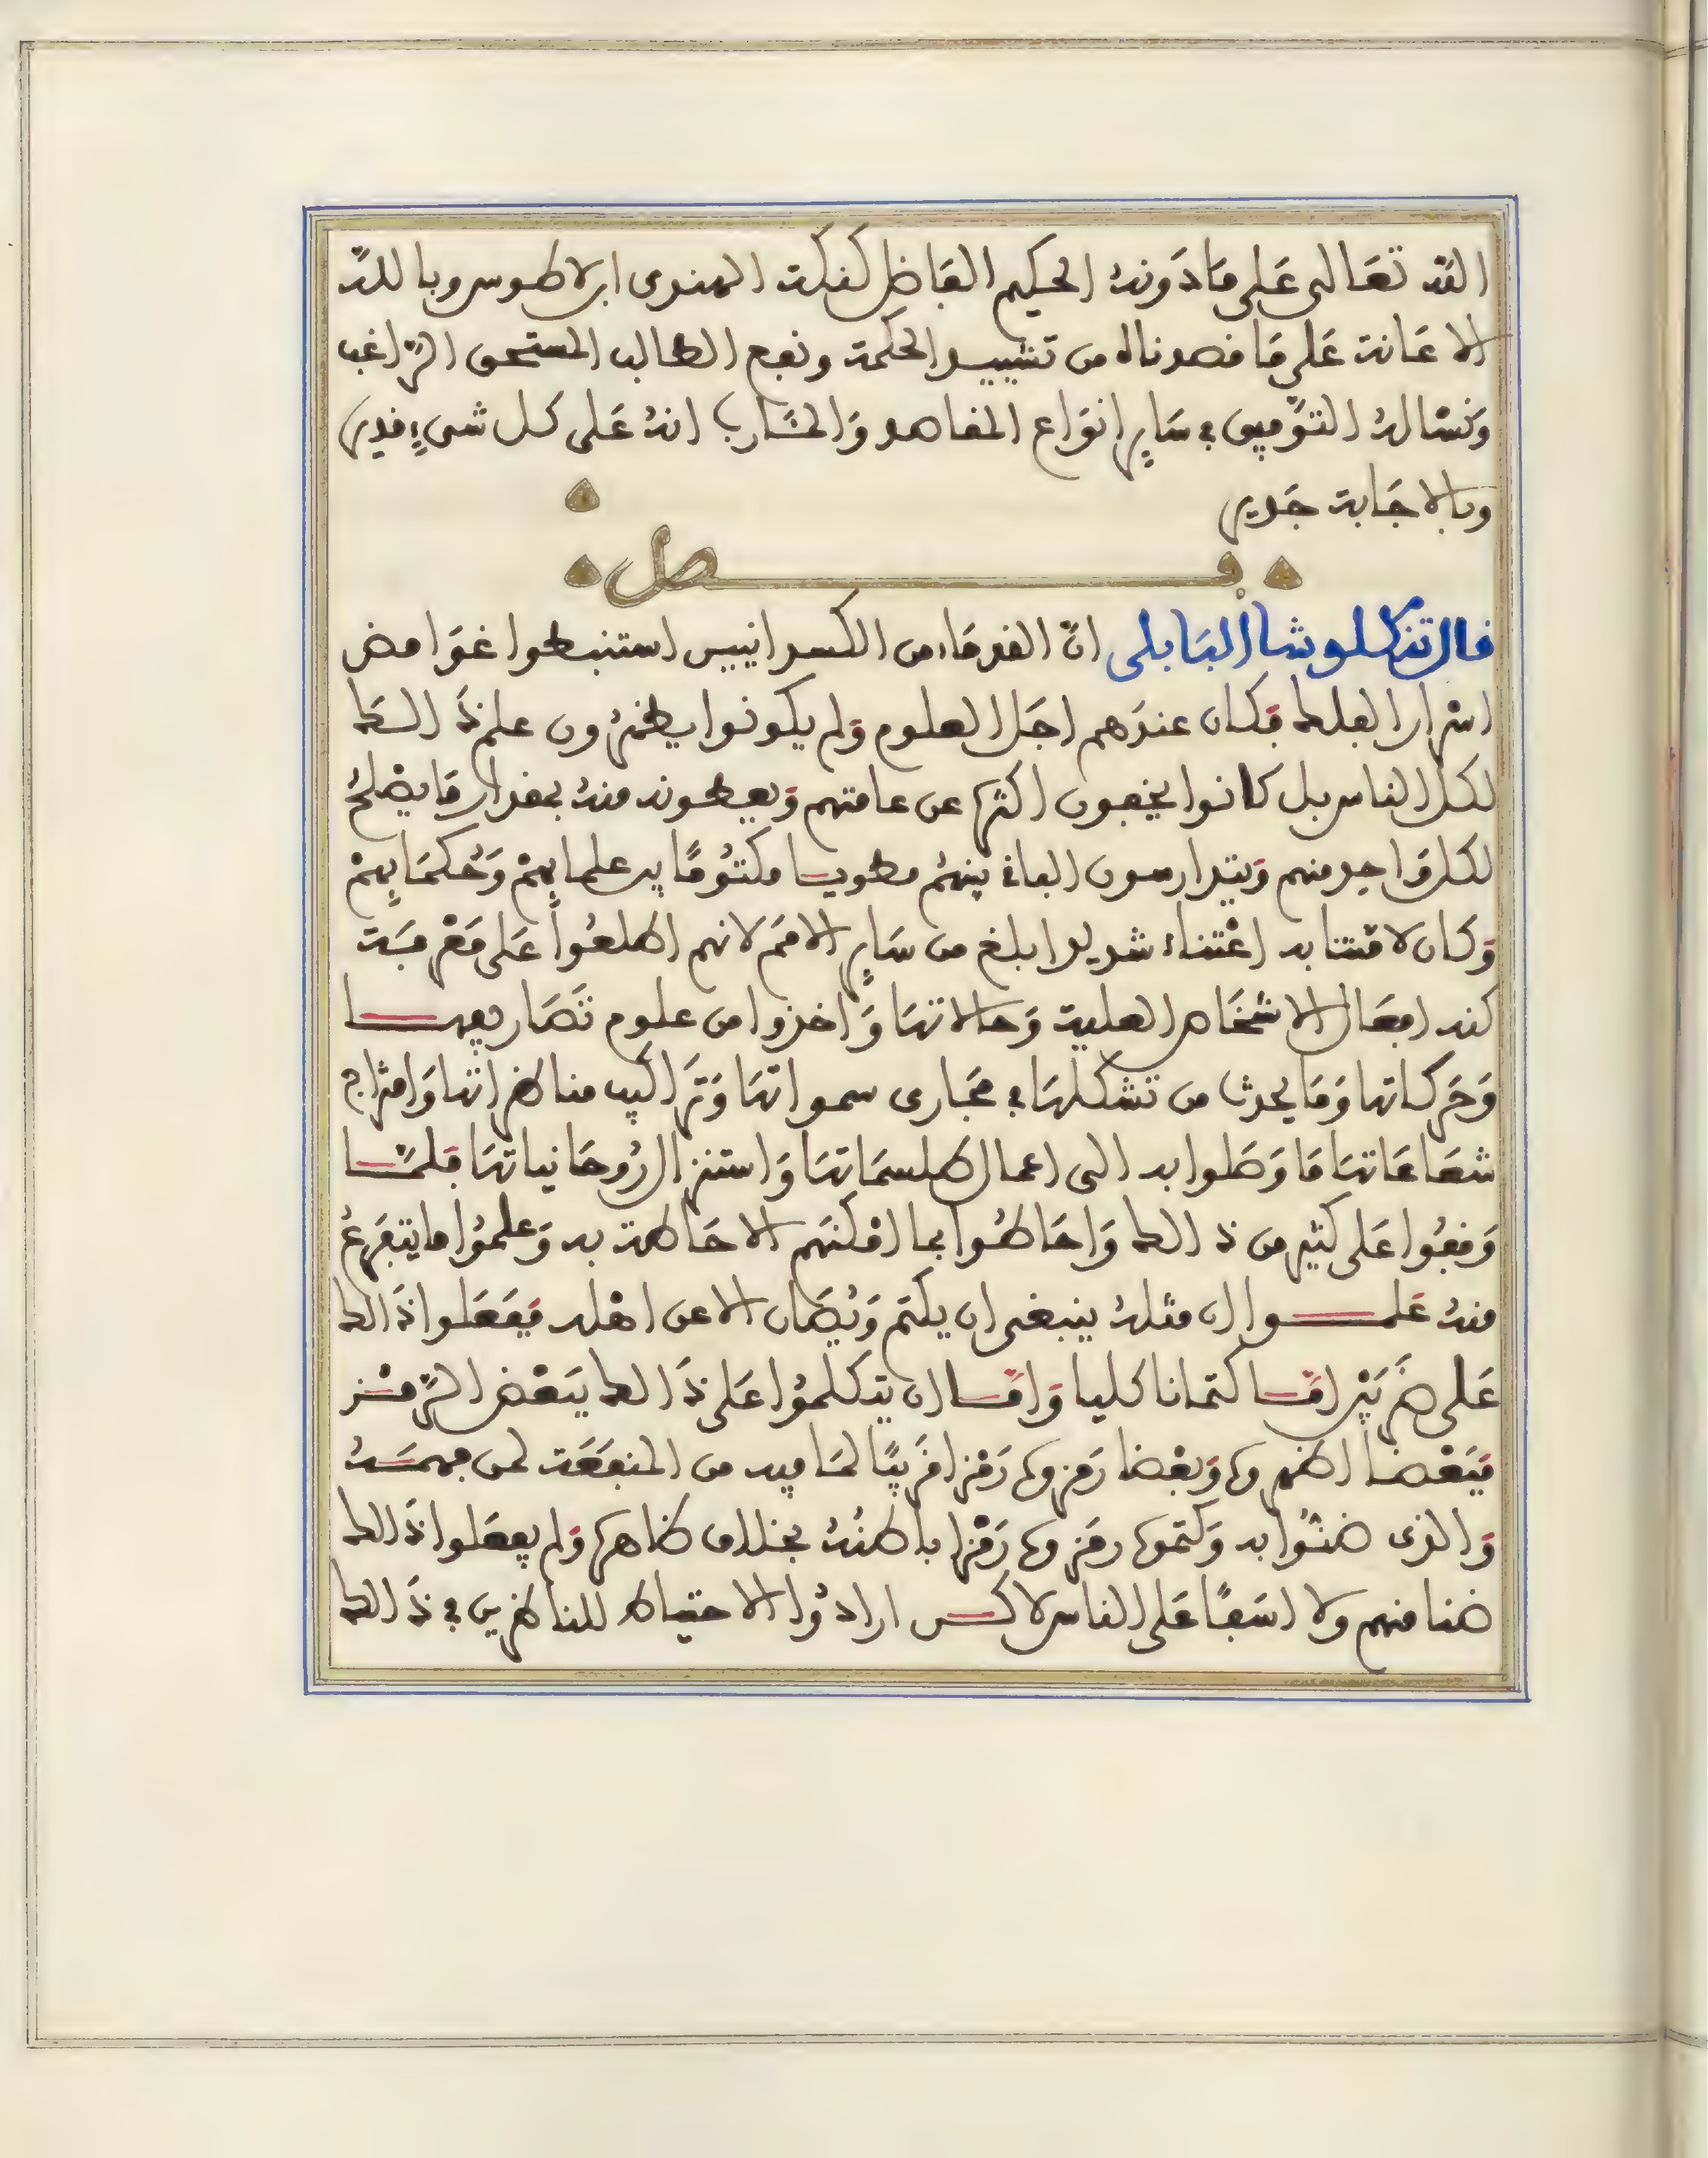 الله تعالى عَلى مَا دَونهُ الحكيم الفَاضل كنكته الهندى ابلاطوس وبالله
الاعَانة عَلى مَا قصدناه من تشييد الحكمة ونفع الطالب المستحق الرّاغب
وَنسْالهُ التوَّفيق في سَايِر انوَاع المقاصد وَالمئَارب انهُ عَلى كل شىءٍ قدير
وبالاجَابة جَدير
فصل
قال تنكلوشا البَابلى انّ القدمَاء من الكسدانيين استنبطوا غوَامض
اسْرار الفلك فكان عندَهم اجَل العلوم وَلم يكونوا يظهرُون علم ذَالكَ
لكل الناس بل كانوا يخفون اكثرها عن عامتهم وَيعطونه منهُ بمقدار مَا يصْلحُ
لكل وَاحد منهم وَيتدارسون الباقى بينهُم مطويـا مكتوُمًا بين علمايِهمْ وَحُكمَايِهمْ
وَكان لاقتنا به اعْتناء شديدا ابلغ من سَايِر الامَم لانهم اطلعُوا عَلى مَعْرفَـة
كنه افعَال الاشخَاص العلية وَحالاتهَا وَاخذوا من علوم تَصَاريفهـــا
وَحَركاتها وَمَا يحدث من تشكلهَا في مجَارى سمواتهَا وَتَراكيب مناظراتها وَامتزاج
شعَاعَاتهَا مَا وَصَلوا به الى اعمال طلسمَاتهَا وَاستنزال رُوحَانياتهَا فلمّــا
وَقفُوا عَلى كثير من ذالك وَاحَاطُوا بما امْكنَهم الاحَاطة به وَعلمُوا ما يتفَرعُ
منهُ عَلمــــوا ان مثلهُ ينبغى ان يكتم وَيُصَان الا عن اهْله فَفَعَلوا ذَالك
عَلى ضَربَيْن امّــا كتمانا كليا وَامّــا ان يتكلمُوا عَلى ذَالك ببَعْض الرّمْــز
فبَعْضا اظهروها وَبعْضا رَمزوها رَمْزا قَريبًا لمَا فيه من المنفَعَة لمن فهمَـهُ
وَالذى ضنّوُا به وَكتموها رمَزوها رَمْزا باطنُهُ بخلاف ظاهرها وَلم يفعَلوا ذَالك
ضنا منهم ولا اسَفًا عَلى الناس لاكـــن ارادوُا الاحتياط للناظرين في ذَالك